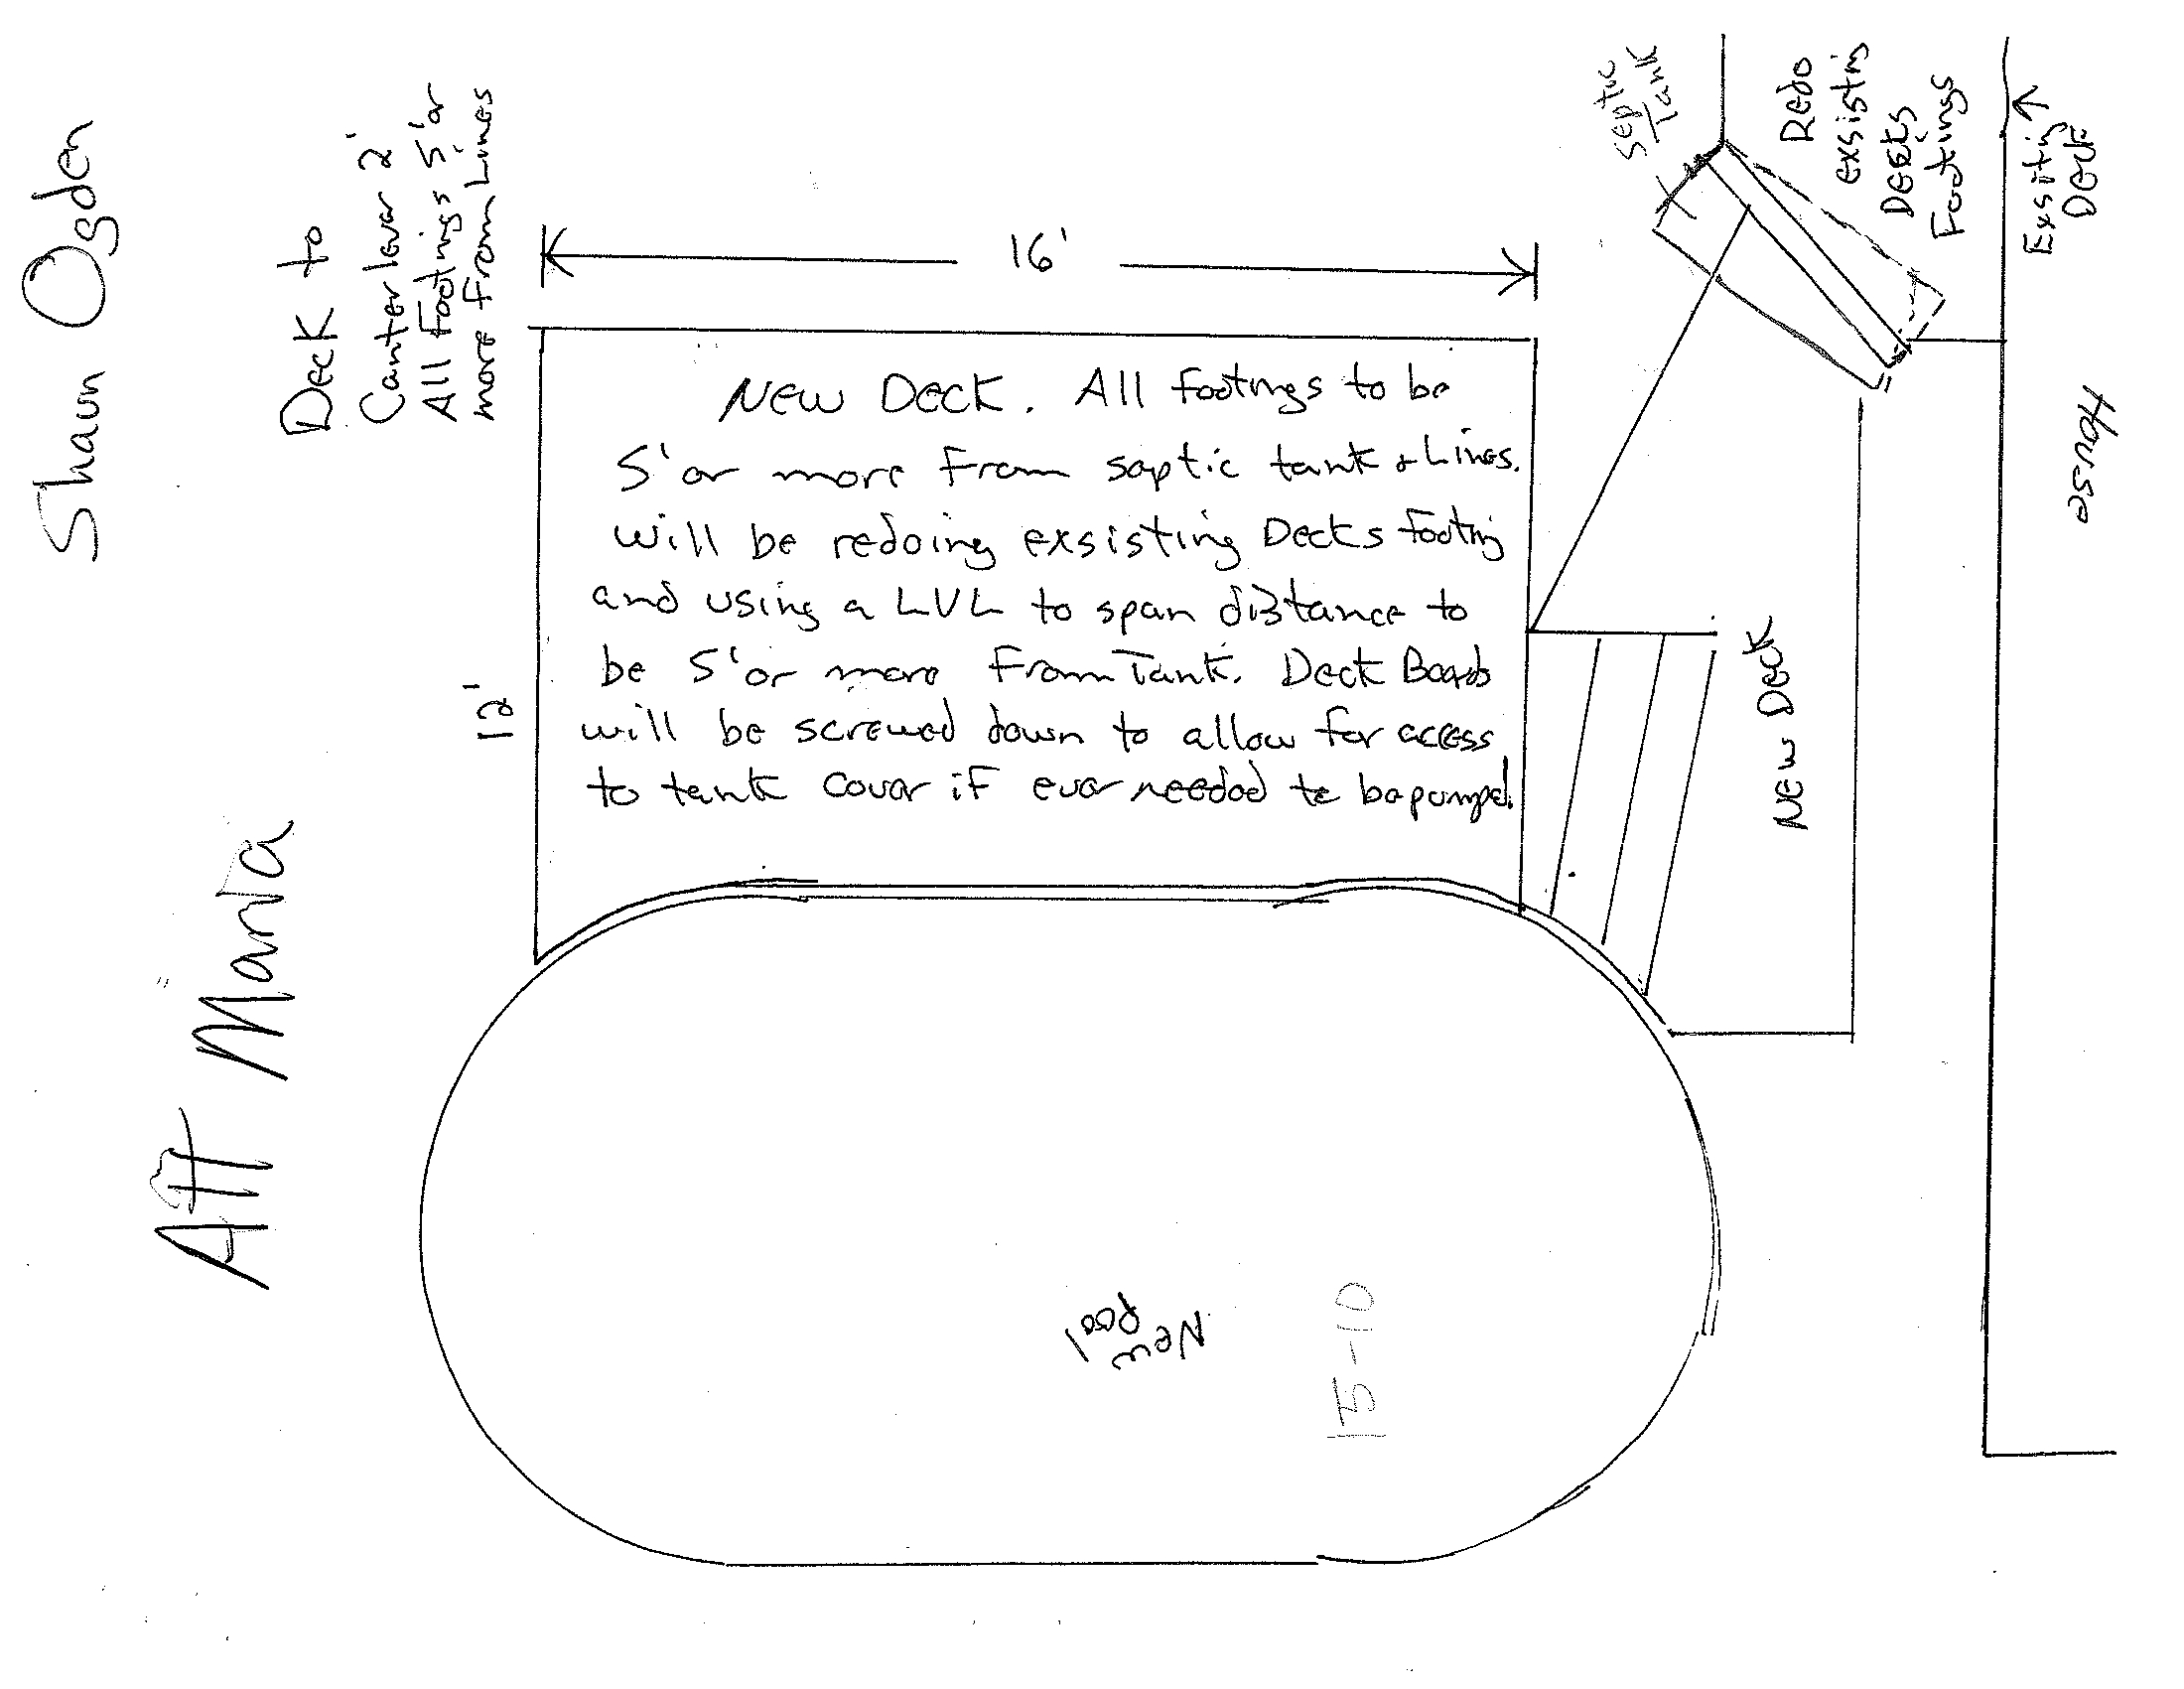 Shaun Ogden
Att Maria
Deck to
Canter lever 2'
All Footings 5' or
more From Lines
16'
12'
New Deck. All footings to be
5' or more from septic tank & Lines.
will be redoing exsisting Decks footing
and using a LVL to span distance to
be 5' or more From Tank. Deck Boards
will be screwed down to allow for access
to tank cover if ever needed to be pumped.
Septic
Tank
Redo
exsisting
Decks
Footings
Exsiting
Deck
House
New Deck
New
Pool
15-10